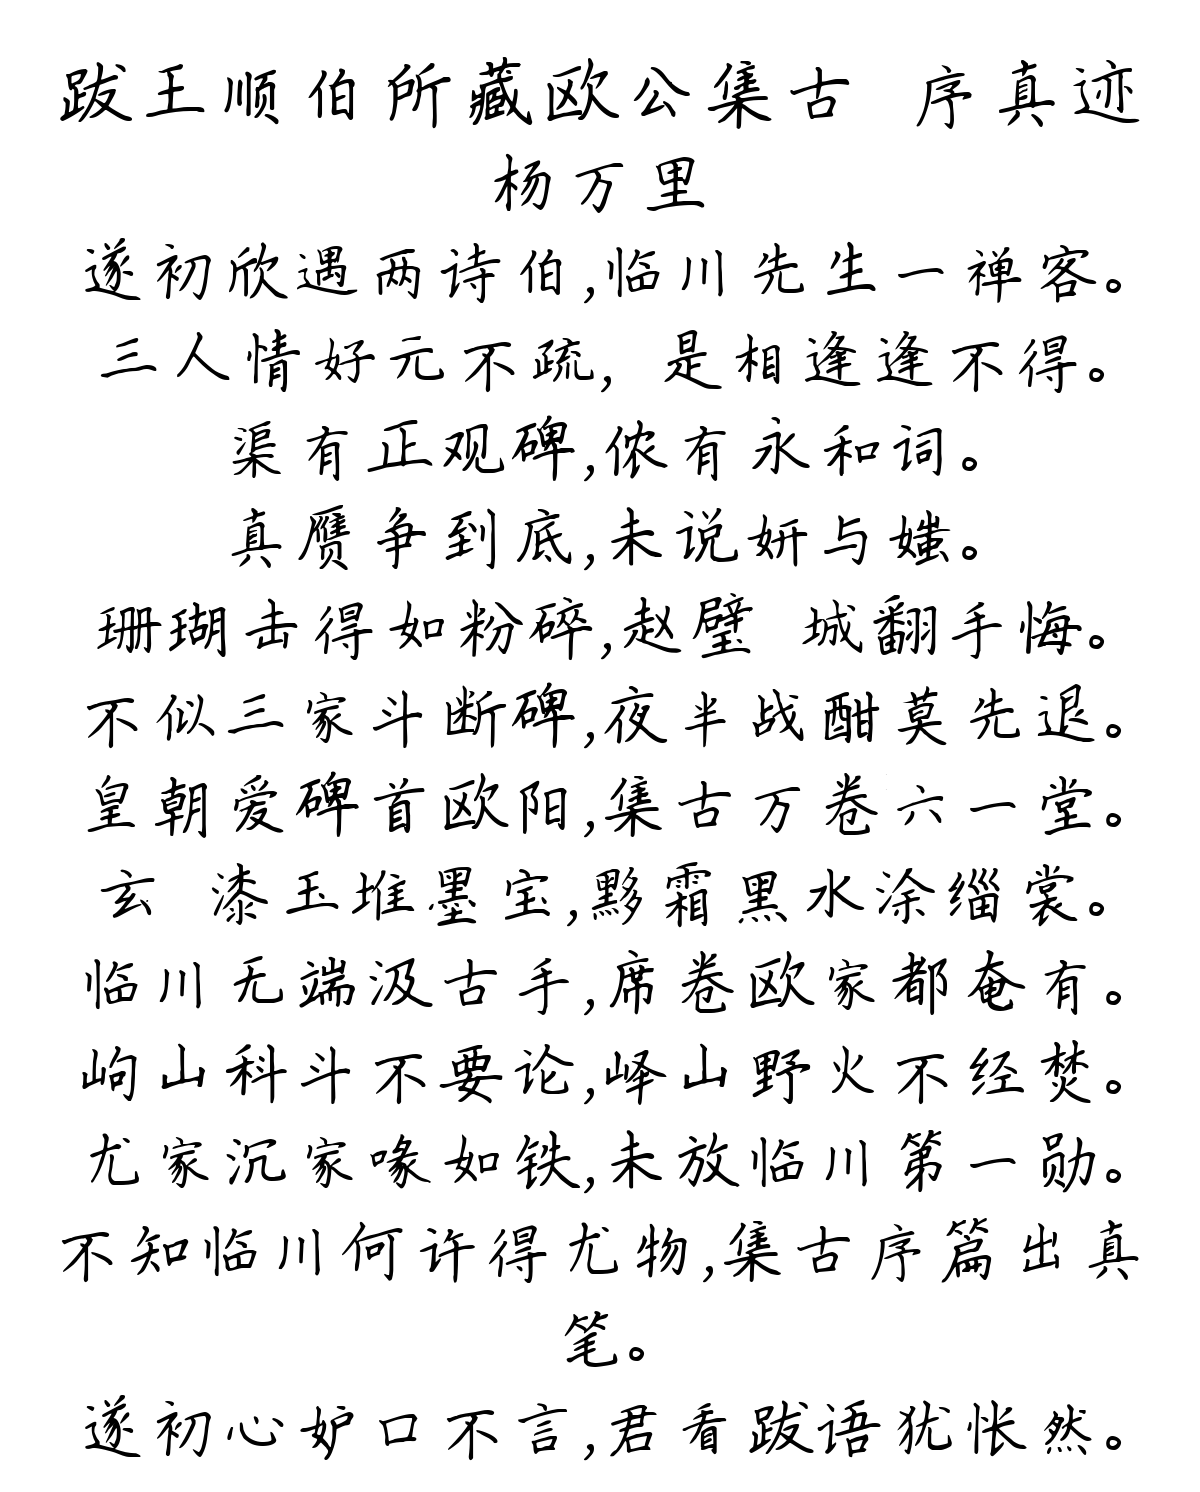 跋王顺伯所藏欧公集古 序真迹
杨万里
遂初欣遇两诗伯,临川先生一禅客。
三人情好元不疏, 是相逢逢不得。
渠有正观碑,侬有永和词。
真赝争到底,未说妍与媸。
珊瑚击得如粉碎,赵璧 城翻手悔。
不似三家斗断碑,夜半战酣莫先退。
皇朝爱碑首欧阳,集古万卷六一堂。
玄 漆玉堆墨宝,黟霜黑水涂缁裳。
临川无端汲古手,席卷欧家都奄有。
岣山科斗不要论,峄山野火不经焚。
尤家沉家喙如铁,未放临川第一勋。
不知临川何许得尤物,集古序篇出真
笔。
遂初心妒口不言,君看跋语犹怅然。